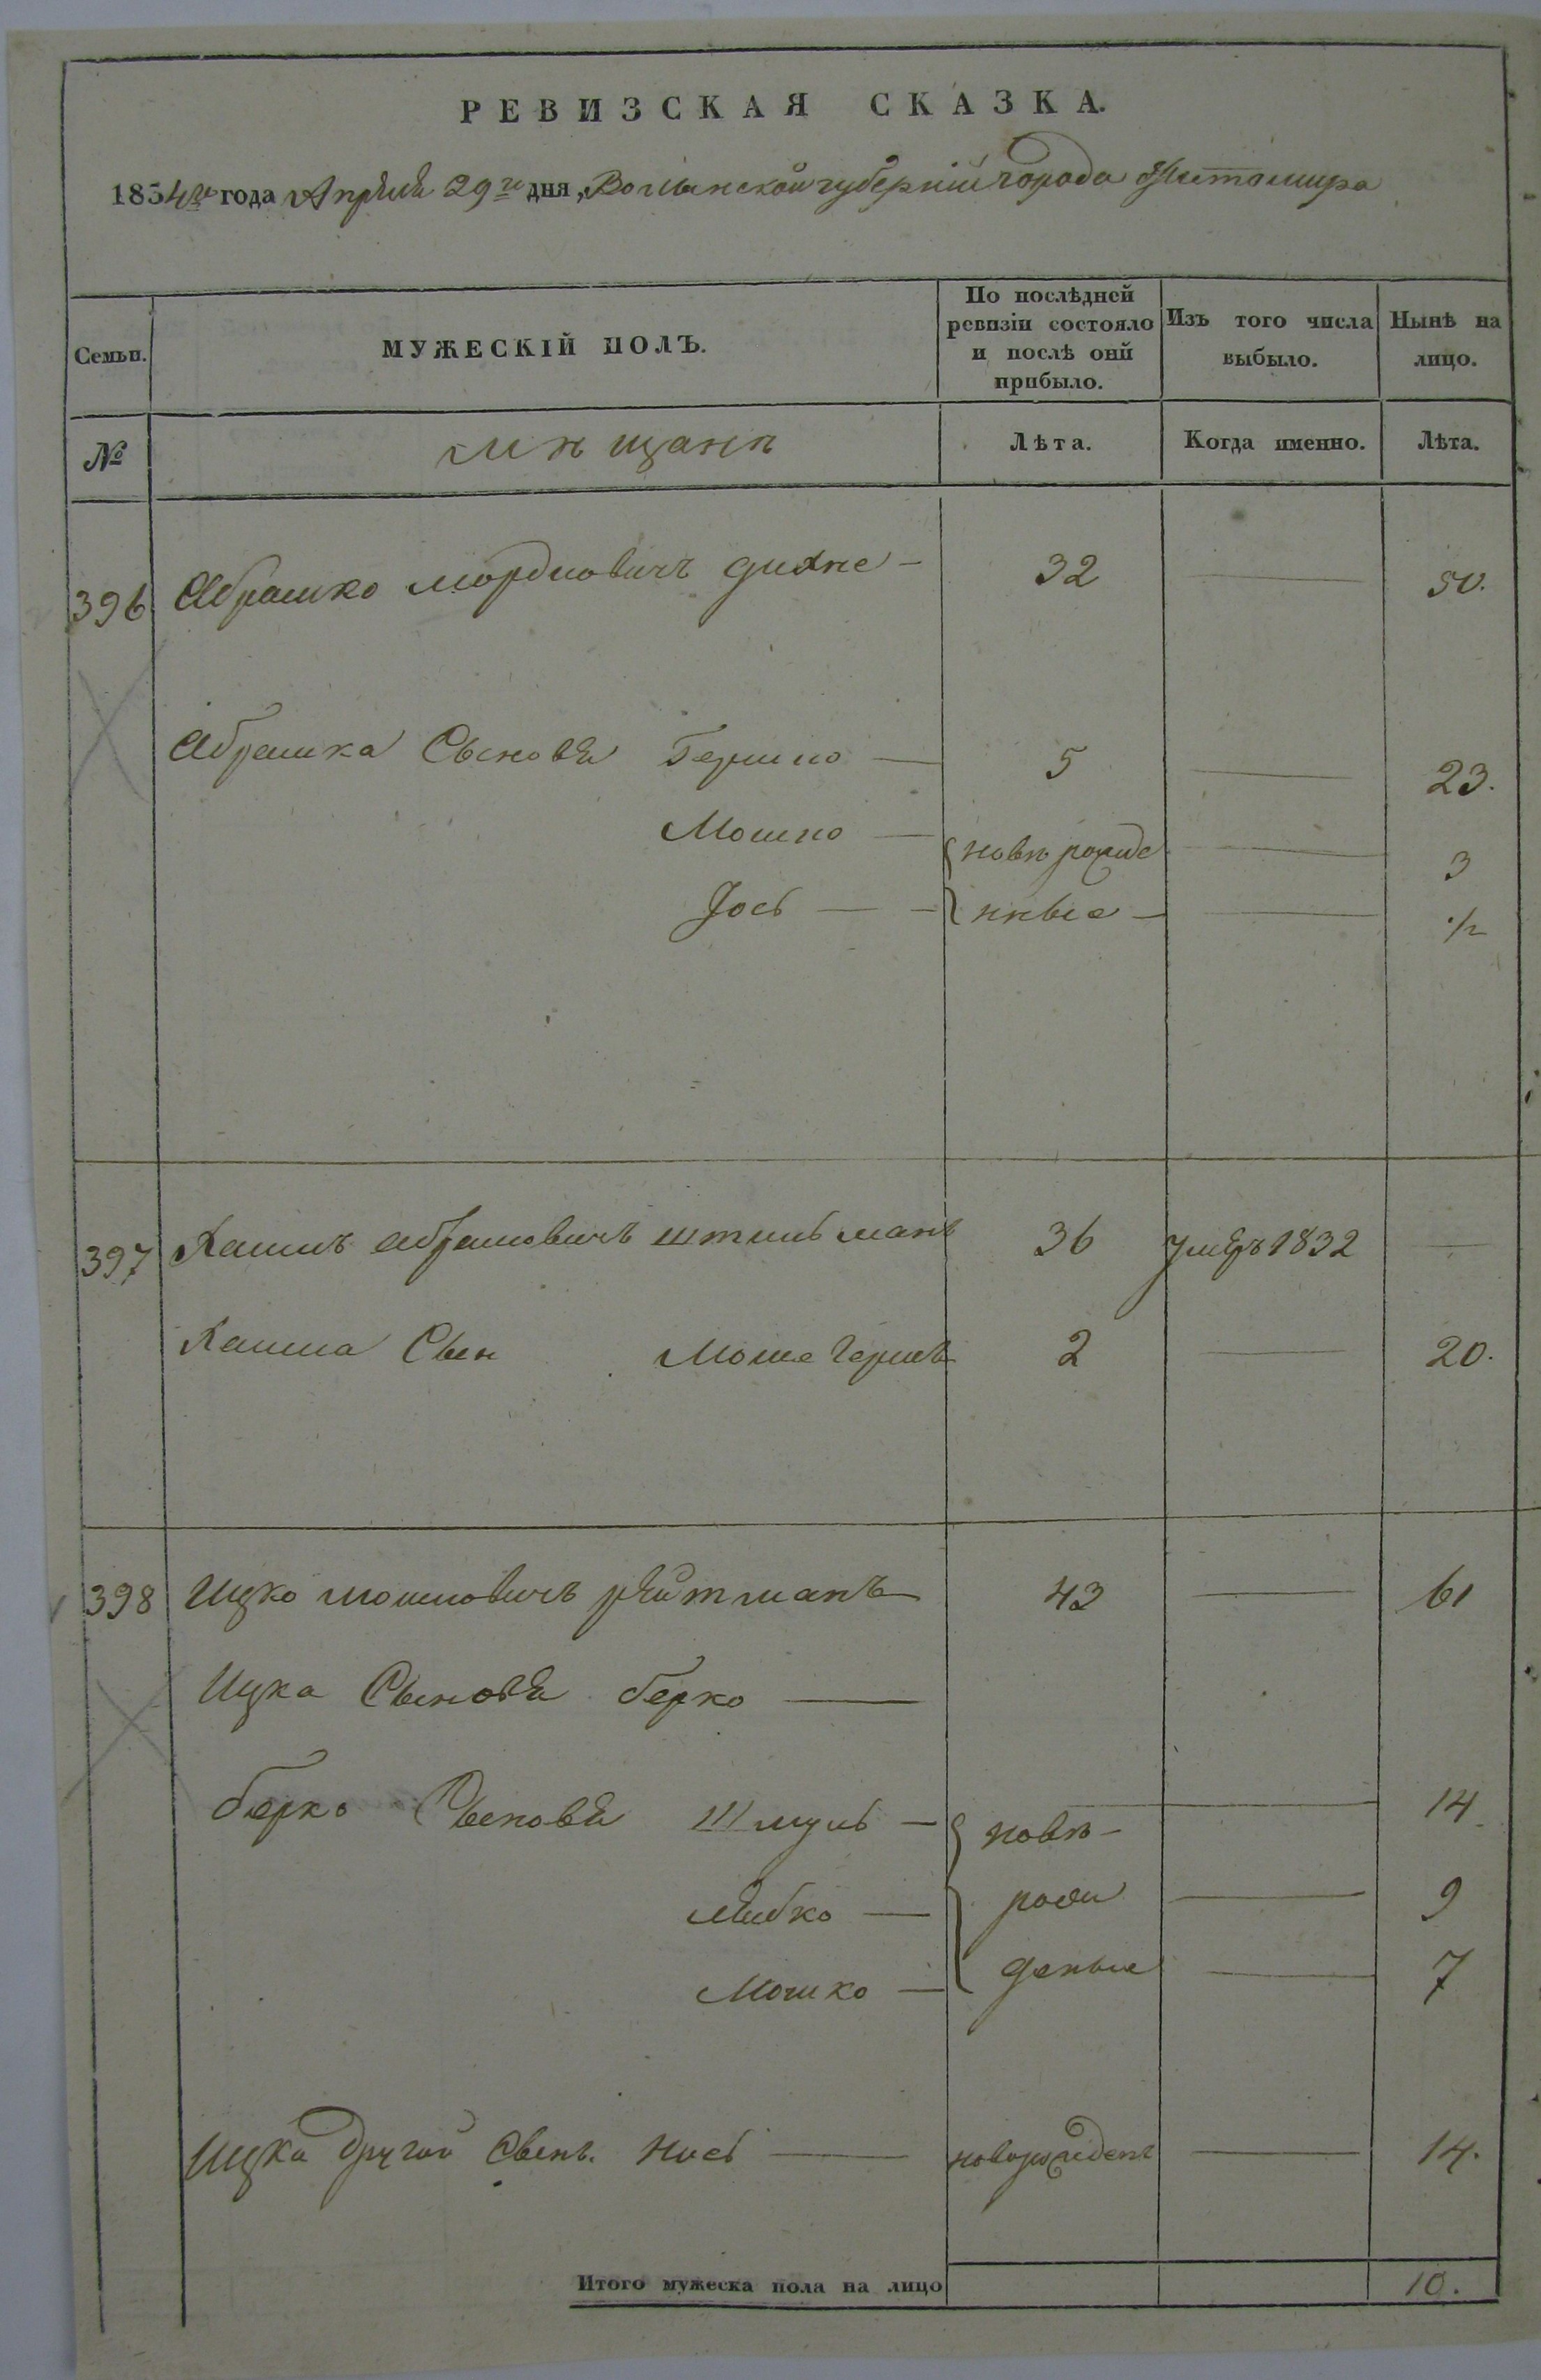 РЕВИЗСКАЯ СКАЗКА.
1854го года Апреля 29го дня, Волынской губерніи города Житомира
Семьи.
МУЖЕСКІЙ ПОЛЪ.
По послѣдней
ревизіи состояло
и послѣ оной
прибыло.
Изъ того числа
выбыло.
Нынѣ на
лицо.
№
мѣщанѣ
Лѣта.
Когда именно.
Лѣта.
396 Абрашко Мордковичъ 32 — 50.
Абрашка Сыновья Гершко — 5 — 23.
Мошко — новорожде — 3
Йось — — нные — — 1/2
397 Хаимъ Абрамовичъ Штильманъ 36 умеръ 1832 —
Хаима Сын Мошегершъ 2 — 20.
398 Ицко Мошковичъ Рейтманъ 43 — 61
Ицка Сыновья Берко —
Берко Сыновья Шмуль — ново — 14
Лейбко — рож — 9
Мошко — деные — 7
Ицка другой Сынъ. — новорожденъ — 14.
Итого мужеска пола на лицо 10.